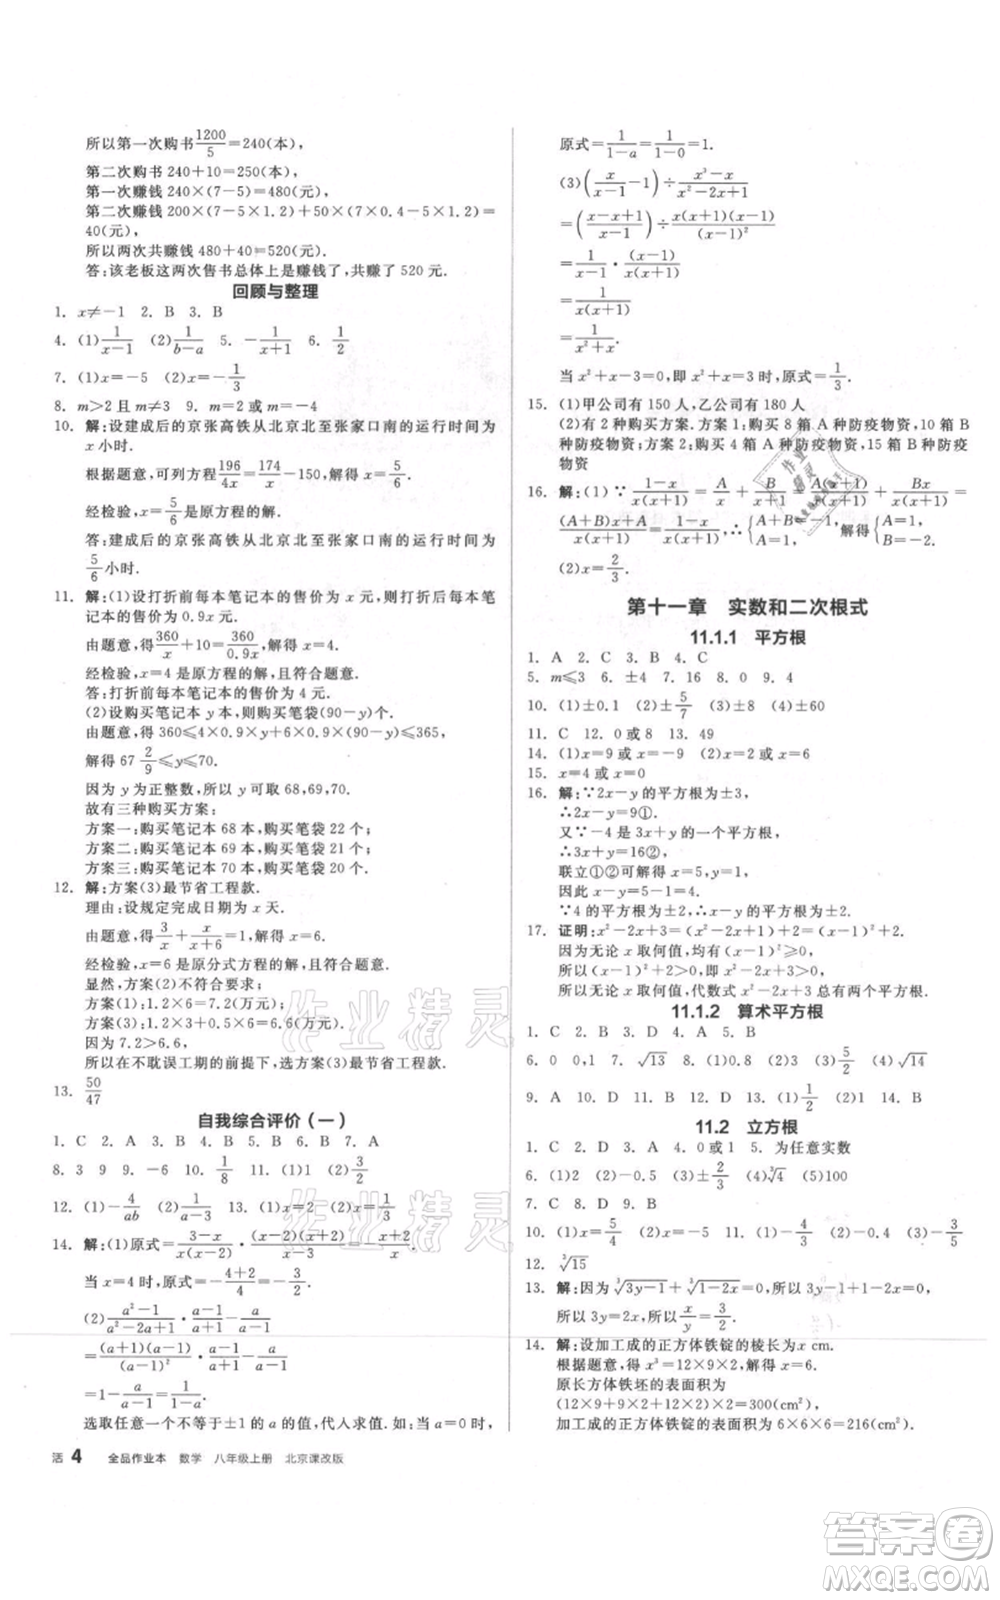 所以第一次购书1200/5=240(本),
第二次购书 240+10=250(本),
第一次赚钱 240×(7-5)=480(元),
第二次赚钱 200×(7-5×1.2)+50×(7×0.4-5×1.2)=
40(元),
所以两次共赚钱 480+40=520(元).
答:该老板这两次售书总体上是赚钱了,共赚了 520 元.
回顾与整理
1. x≠-1 2. B 3. B
4. (1)1/(x-1) (2)1/(b-a) 5. -1/(x+1) 6. 1/2
7. (1)x=-5 (2)x=-1/3
8. m>2 且 m≠3 9. m=2 或 m=-4
10. 解:设建成后的京张高铁从北京北至张家口南的运行时间为
x 小时.
根据题意,可列方程196/4x=174/x-150,解得 x=5/6.
经检验,x=5/6是原方程的解.
答:建成后的京张高铁从北京北至张家口南的运行时间为
5/6小时.
11. 解:(1)设打折前每本笔记本的售价为 x 元,则打折后每本笔
记本的售价为 0.9x 元.
由题意,得360/x+10=360/0.9x,解得 x=4.
经检验,x=4 是原方程的解.
答:打折前每本笔记本的售价为 4 元.
(2)设购买笔记本 y 本,则购买笔袋(90-y)个.
由题意,得 360≤4×0.9×y+6×0.9×(90-y)≤365,
解得 67 2/9≤y≤70.
因为 y 为正整数,所以 y 可取 68,69,70.
故有三种购买方案:
方案一:购买笔记本 68 本,购买笔袋 22 个;
方案二:购买笔记本 69 本,购买笔袋 21 个;
方案三:购买笔记本 70 本,购买笔袋 20 个.
12. 解:方案(3)最节省工程款.
理由:设规定完成日期为 x 天.
由题意,得3/x+x/(x+6)=1,解得 x=6.
经检验,x=6 是原分式方程的解.
显然,方案(2)不符合要求;
方案(1):1.2×6=7.2(万元);
方案(3):1.2×3+0.5×6=6.6(万元).
因为 7.2>6.6,
所以在不耽误工期的前提下,选方案(3)最节省工程款.
13. 50/47
自我综合评价(一)
1. C 2. A 3. B 4. B 5. B 6. B 7. A
8. 3 9. -6 10. 1/8 11. (1)3 (2)3/2
12. (1)-4/ab (2)a/(a-3) 13. (1)x=-6 (2)x=3
14. 解:(1)原式=(3-x)/(x(x-2))·((x+2)(x-2))/(x-3)=-(x+2)/x.
当 x=4 时,原式=-(4+2)/4=-3/2.
(2)(a²-1)/(a²-2a+1)+(a-1)/a·a/(1-a)
=((a+1)(a-1))/(a-1)²+(a-1)/a·a/(1-a)
=1-a/(a-1)=1/(1-a).
选取任意一个不等于±1 的 a 的值,代入求值. 如:当 a=0 时,
原式=1/(1-a)=1/(1-0)=1.
(3)(x/(x-1)-1)÷(x³-x)/(x²-2x+1)
=((x-x+1)/(x-1))÷(x(x+1)(x-1))/(x-1)²
=1/(x-1)·(x-1)/(x(x+1))
=1/(x(x+1))
=1/(x²+x).
当 x²+x-3=0,即 x²+x=3 时,原式=1/3.
15. (1)甲公司有 150 人,乙公司有 180 人
(2)有 2 种购买方案. 方案 1:购买 8 箱 A 种防疫物资,10 箱 B
种防疫物资;方案 2:购买 4 箱 A 种防疫物资,15 箱 B 种防疫
物资
16. 解:(1)∵1/(x(x+1))=A/x+B/(x+1)=A(x+1)/(x(x+1))+Bx/(x(x+1))=
((A+B)x+A)/(x(x+1))=1/(x(x+1)),∴{A+B=0, A=1, 解得{A=1, B=-1.
(2)x=2/3.
第十一章 实数和二次根式
11.1.1 平方根
1. A 2. C 3. B 4. C
5. m≤3 6. ±4 7. 16 8. 0 9. 4
10. (1)±0.1 (2)±5/7 (3)±9 (4)±60
11. C 12. 0 或 8 13. 49
14. (1)x=9 或 x=-9 (2)x=±2
15. x=4 或 x=0
16. 解:∵2x-y 的平方根为±3,
∴2x-y=9①.
又∵-4 是 3x+y 的一个平方根,
∴3x+y=16②,
联立①②可解得 x=5,y=1,
因此 x-y=5-1=4.
∵4 的平方根为±2,∴x-y 的平方根为±2.
17. 证明:x²-2x+3=(x²-2x+1)+2=(x-1)²+2.
因为无论 x 取何值,均有(x-1)²≥0,
所以(x-1)²+2>0,即 x²-2x+3>0,
所以无论 x 取何值,代数式 x²-2x+3 总有平方根.
11.1.2 算术平方根
1. C 2. B 3. D 4. A 5. B
6. 0 0,1 7. √13 8. (1)0.8 (2)3 (3)5/2 (4)√14
9. A 10. D 11. B 12. B 13. (1)1/2 (2)2 14. B
11.2 立方根
1. C 2. C 3. D 4. 0 或 1 5. 为任意实数
6. (1)2 (2)-0.5 (3)±2/3 (4)∛4 (5)100
7. C 8. D 9. B
10. (1)x=5/4 (2)x=4 11. (1)-4/3 (2)-0.4 (3)
12. ∛15
13. 解:因为∛(3y-1)+∛(1-2x)=0,所以 3y-1+1-2x=0,
所以 3y=2x,所以x/y=3/2.
14. 解:设加工成的正方体铁锭的棱长为 x cm.
根据题意,得 x³=12×9×2,解得 x=6.
原长方体铁坯的表面积为
(12×9+9×2+12×2)×2=300(cm²),
加工成的正方体铁锭的表面积为 6×6×6=216(cm²).
活 4 全品作业本 数学 八年级上册 北京课改版
作业精灵
作业精灵
答案卷